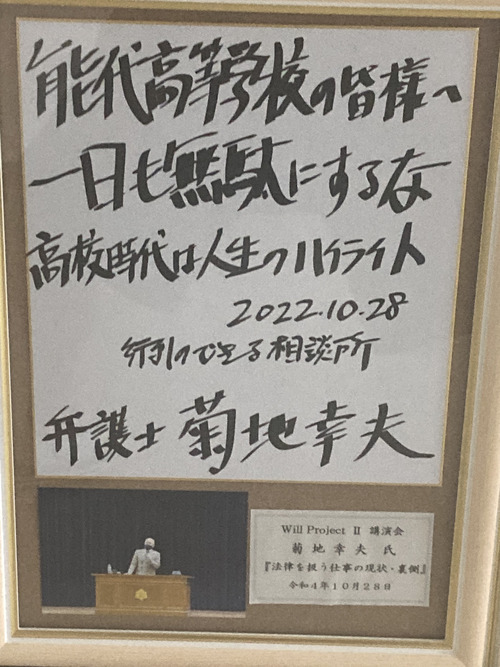 能代高等学校の皆様へ
一日も無駄にするな
高校時代は人生のハイライト
2022.10.28
行列のできる相談所
弁護士 菊地幸夫
Will Project Ⅱ 講演会
菊地幸夫氏
『法律を扱う仕事の現状・裏側』
令和4年10月28日